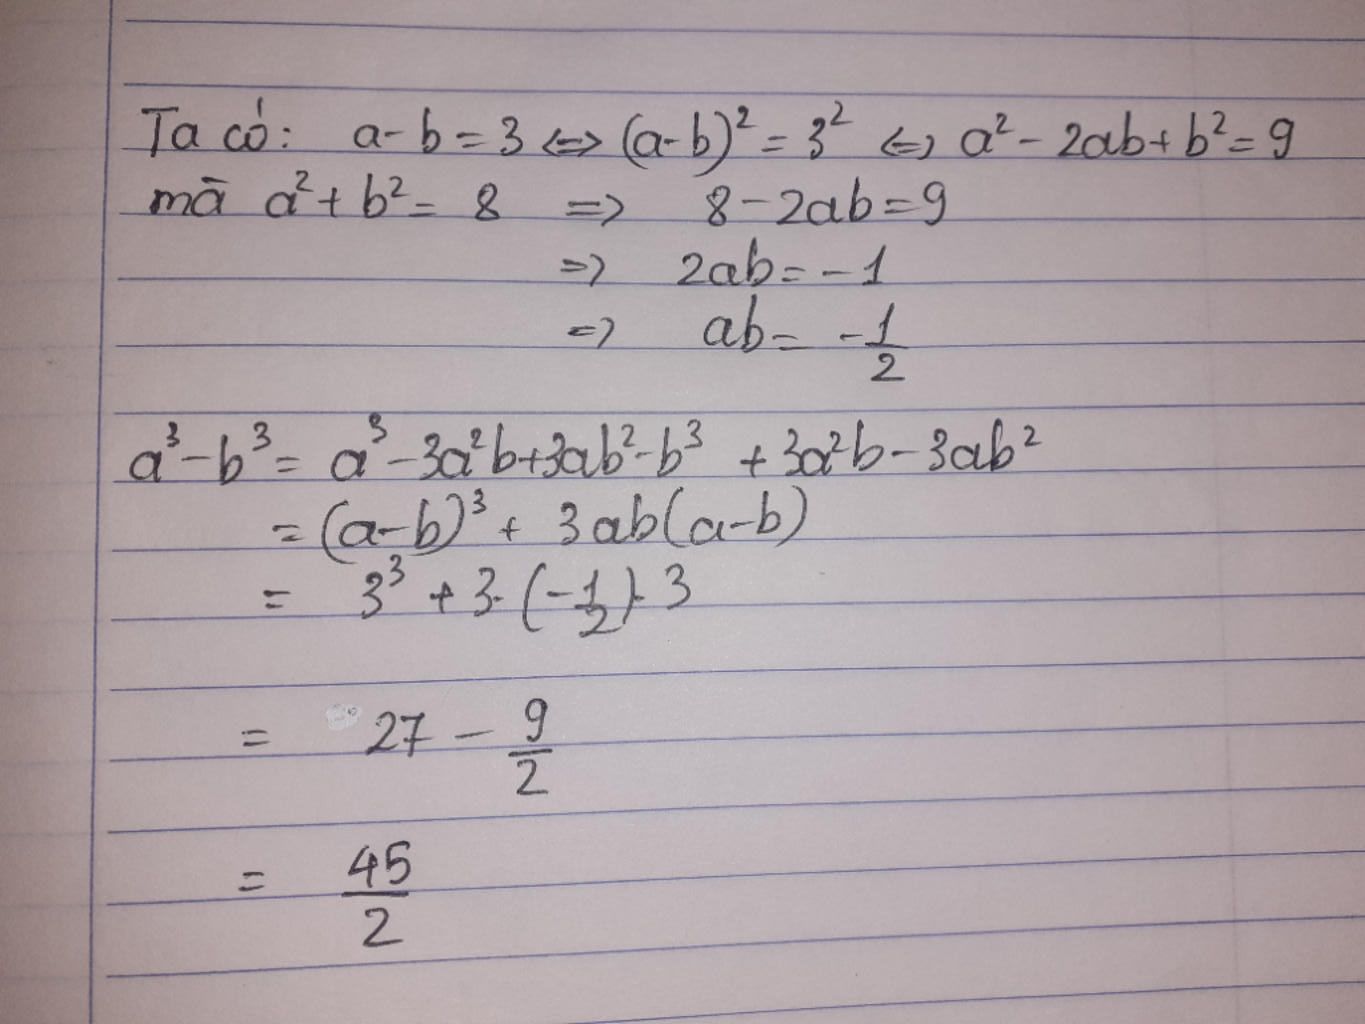 Ta có: a-b=3 ⇔ (a-b)² = 3² ⇔ a² - 2ab + b² = 9
mà a² + b² = 8 ⇒ 8 - 2ab = 9
⇒ 2ab = -1
⇒ ab = -1/2
a³ - b³ = a³ - 3a²b + 3ab² - b³ + 3a²b - 3ab²
= (a-b)³ + 3ab(a-b)
= 3³ + 3.(-1/2).3
= 27 - 9/2
= 45/2